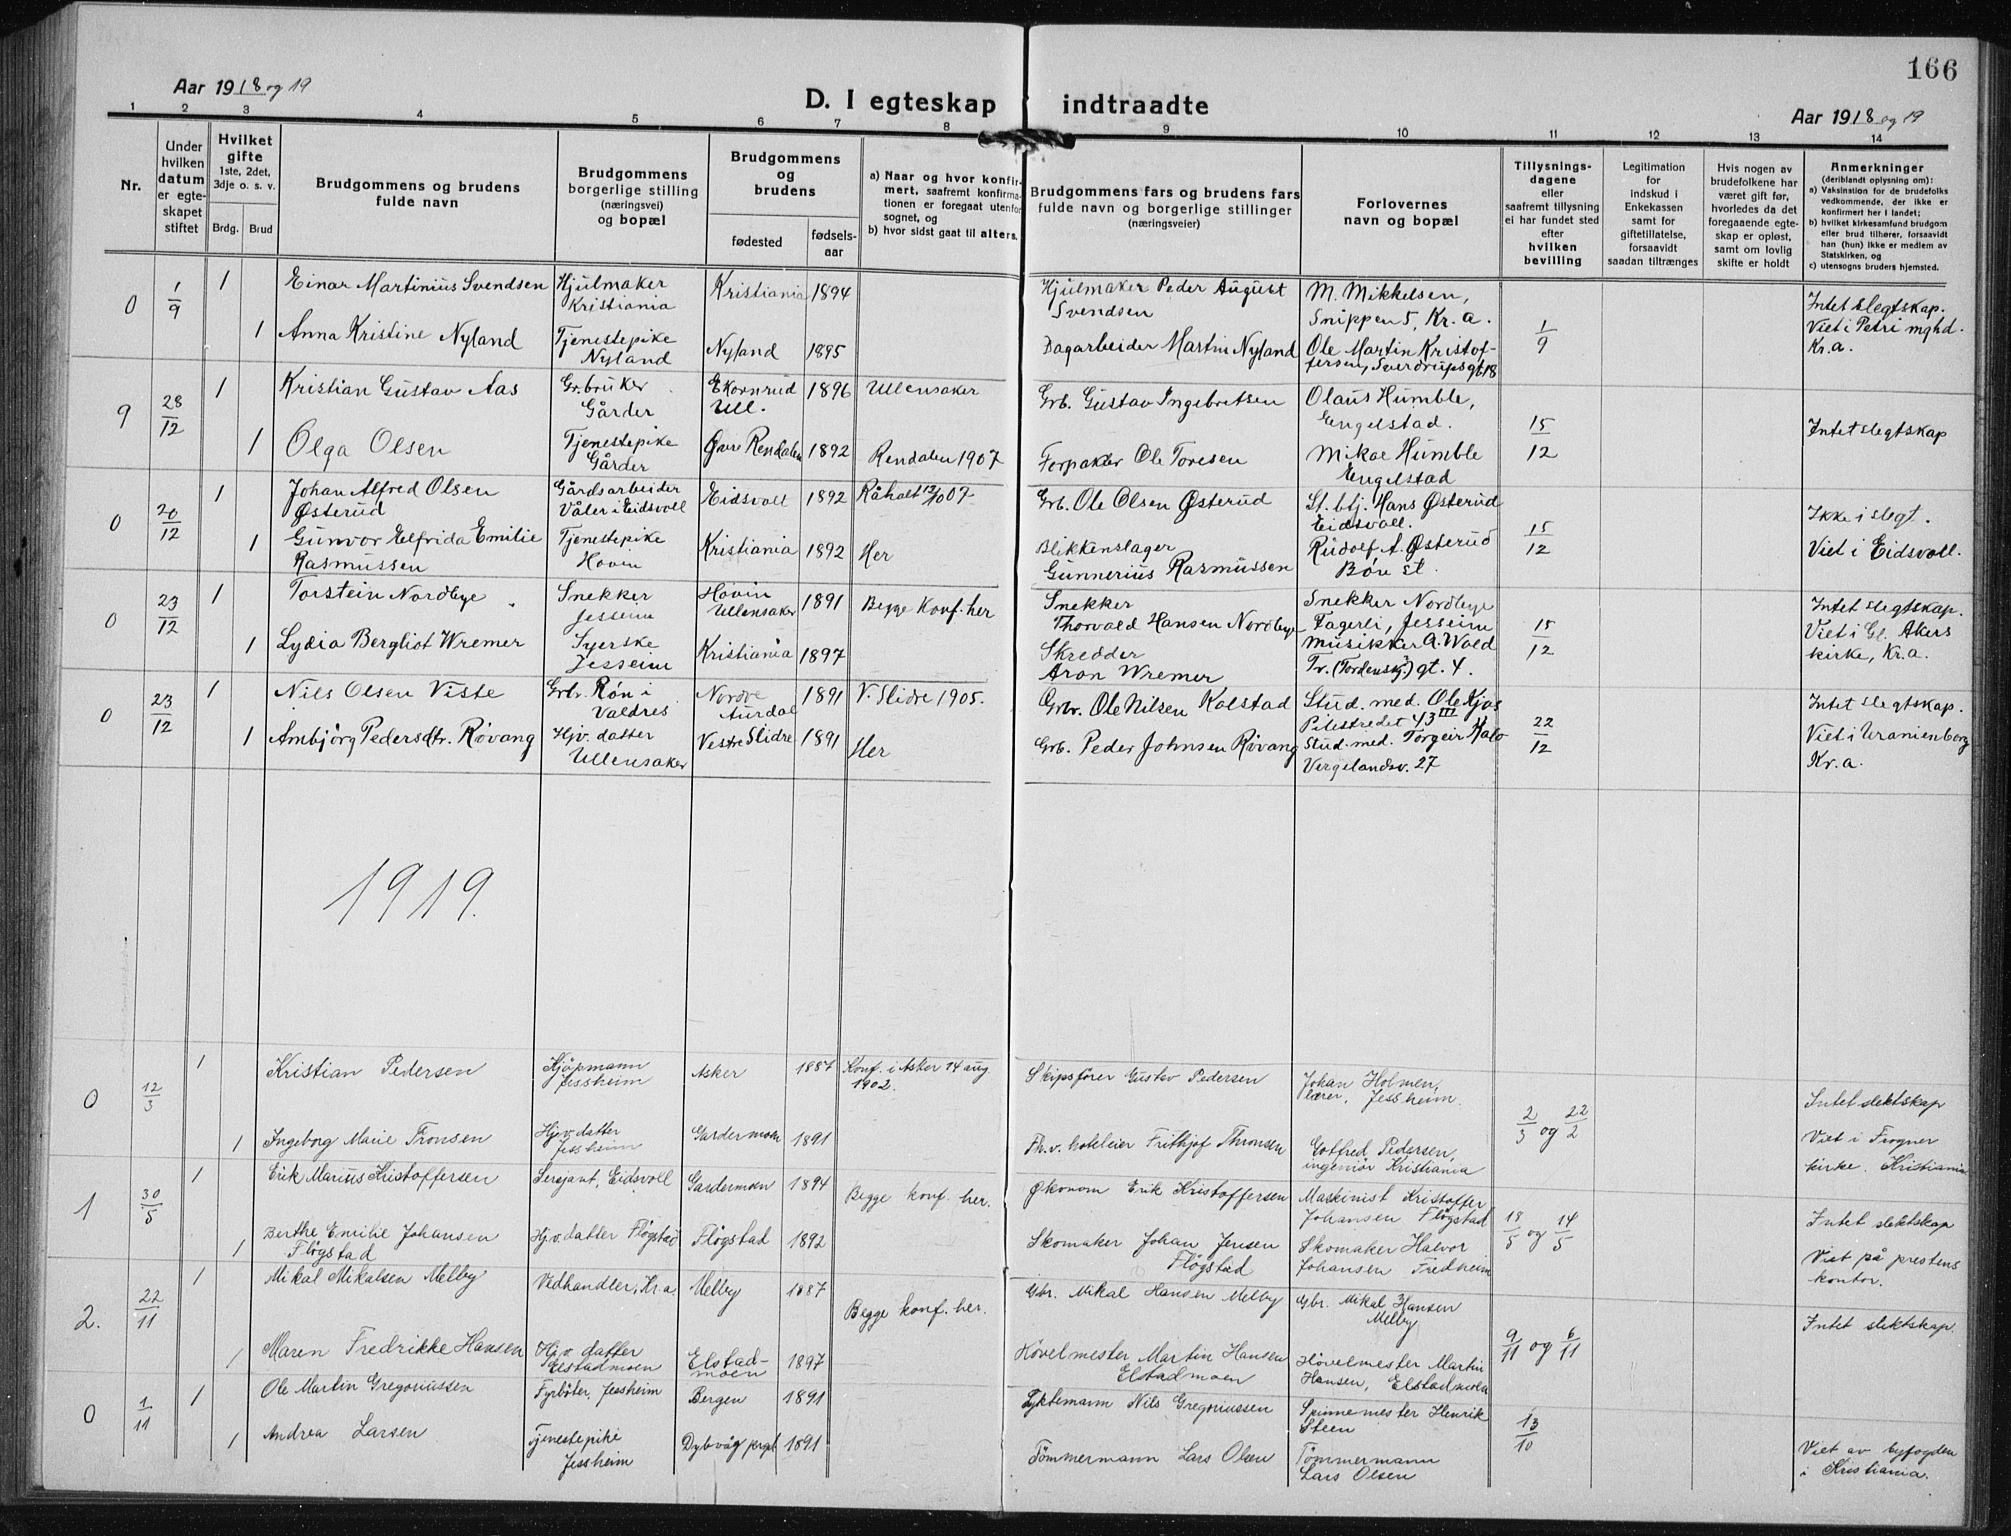 166
Aar 1918 og 19
D. I egteskap indtraadte
Aar 1918 og 19
1 2 3 4 5 6 7 8 9 10 11 12 13 14
Nr.
Under hvilken datum er egteskapet stiftet
Hvilket gifte 1ste, 2det, 3dje o. s. v.
Brdg. Brud
Brudgommens og brudens fulde navn
Brudgommens og brudens borgerlige stilling (næringsvei) og bopæl
Brudgommens og brudens
fødested
fødselsaar
a) Naar og hvor konfirmert, saafremt konfirmationen er foregaat utenfor sognet, og
b) hvor sidst gaat til alters.
Brudgommens fars og brudens fars fulde navn og borgerlige stillinger (næringsveier)
Forlovernes navn og bopæl
Tillysningsdagene eller saafremt tillysning ei har fundet sted efter hvilken bevilling
Legitimation for indskud i Enkekassen samt for giftetillatelse, forsaavidt saadan tiltrænges
Hvis nogen av brudefolkene har været gift før, hvorledes da det foregaaende egteskap er opløst, samt om lovlig skifte er holdt
Anmerkninger (deriblandt oplysning om):
a) Vaksination for de brudefolks vedkommende, der ikke er konfirmert her i landet;
b) hvilket kirkesamfund brudgom eller brud tilhører, forsaavidt han (hun) ikke er medlem av Statskirken, og
c) utensogns bruders hjemsted.
0 1/9 1 Einar Martinius Svendsen Hjulmaker Kristiania Kristiania 1894 Hjulmaker Peder August Svendsen M. Mikkelsen, Snippen 5, Kr.a. 1/9 Intet slegtskap. Viet i Petri mghd. Kr.a.
1 Anna Kristine Nyland Tjenestepike Nyland Nyland 1895 Dagarbeider Martin Nyland Ole Martin Kristoffersen, Sverdrupsgt. 18
9 28/12 1 Kristian Gustav Aas Gr.bruker Gårder Ekornrud Ull. 1896 Ullensaker Grb. Gustav Ingebretsen Olaus Humble, Engelstad. 15/12 Intet slegtskap
1 Olga Olsen Tjenestepike Gårder Øvre Rendalen 1892 Rendalen 1907 Ole Toresen Humble Engelstad
0 20/12 1 Johan Alfred Olsen Østerud Gårdsarbeider Våler i Eidsvoll Eidsvoll 1892 Råholt 13/10 07 Grb. Ole Olsen Østerud St.btj. Hans Østerud Eidsvoll. 15/12 Ikke i slegt. Viet i Eidsvoll.
1 Gunvor Elfrida Emilie Rasmussen Tjenestepike Hovin Kristiania 1892 Her Blikkenslager Gunnerius Rasmussen Rudolf A. Østerud Bøn st.
0 23/12 1 Torstein Nordbye Snekker Jesseim Hovin Ullensaker 1891 Begge Konf. her Snekker Thorvald Hansen Nordbye Snekker Nordbye Fagerli, Jesseim 15/12 Intet slegtskap. Viet i Gl. Akers kirke, Kr.a.
1 Lydia Bergliot Wremer Syerske Jesseim Kristiania 1897 Skredder Aron Wremer Musikker A. Wold Tr. (Tordensk?) gt. 4.
0 23/12 1 Nils Olsen Viste Grbr. Røn i Valdres Nordre Aurdal 1891 V. Slidre 1905. Grbr. Ole Nilsen Kolstad Stud. med. Ole Kjos Pilestredet 43 III 22/12 Intet slegtskap. Viet i Uranienborg Kr.a.
1 Ambjörg Pedersdtr. Røvang Hjv. datter Ullensaker Vestre Slidre 1891 Her Grb. Peder Johnsen Røvang Stud. med. Torgeir Halo Vergelandsv. 27
1919.
0 12/3 1 Kristian Pedersen Kjöpmann Jessheim Asker 1887 Konf. i Asker 14 aug. 1902. Skipsfører Gustav Pedersen Johan Holmen, Jessheim. 2/3 og 22/2 Intet slektskap Viet i Frogner kirke. Kristiania
1 Ingeborg Marie Tronsen Hjv. datter Jessheim Gardermoen 1891 Fh.v. hoteleier Frithjof Thronsen Gotfred Pedersen, ingeniör Kristiania
1 30/5 1 Erik Marius Kristoffersen Sersjant, Eidsvoll Gardermoen 1894 Begge konf. her. Økonom Erik Kristoffersen Maskinist Kristoffer Johansen Flögstad 18/5 og 14/5 Intet slektskap Viet på prestens kontor.
1 Berthe Emilie Johansen Flögstad Hj.v. datter Flögstad Flögstad 1892 Skomaker Johan Jensen Flögstad Skomaker Halvor Johansen Fredheim
2. 22/11 1 Mikal Mikalsen Melby Vedhandler, Kr.a. Melby 1887 Begge konf. her. Gbr. Mikal Hansen Melby Gbr. Mikal Hansen Melby 9/11 og 6/11 Intet slektskap.
1 Maren Fredrikke Hansen Hj.v. datter Elstadmoen Elstadmoen 1897 Hövelmester Martin Hansen Elstadmoen Hövelmester Martin Hansen, Elstadmoen
0 1/11 1 Ole Martin Gregoriussen Fyrböter, Jessheim Bergen 1891 Lyktemann Nils Gregoriussen Spinnemester Henrik Steen 13/10 Viet av byfogden i Kristiania.
1 Andrea Larsen Tjenestepike Jessheim Dybvåg prgj. 1891 Tömmermann Lars Olsen Tömmermann Lars Olsen